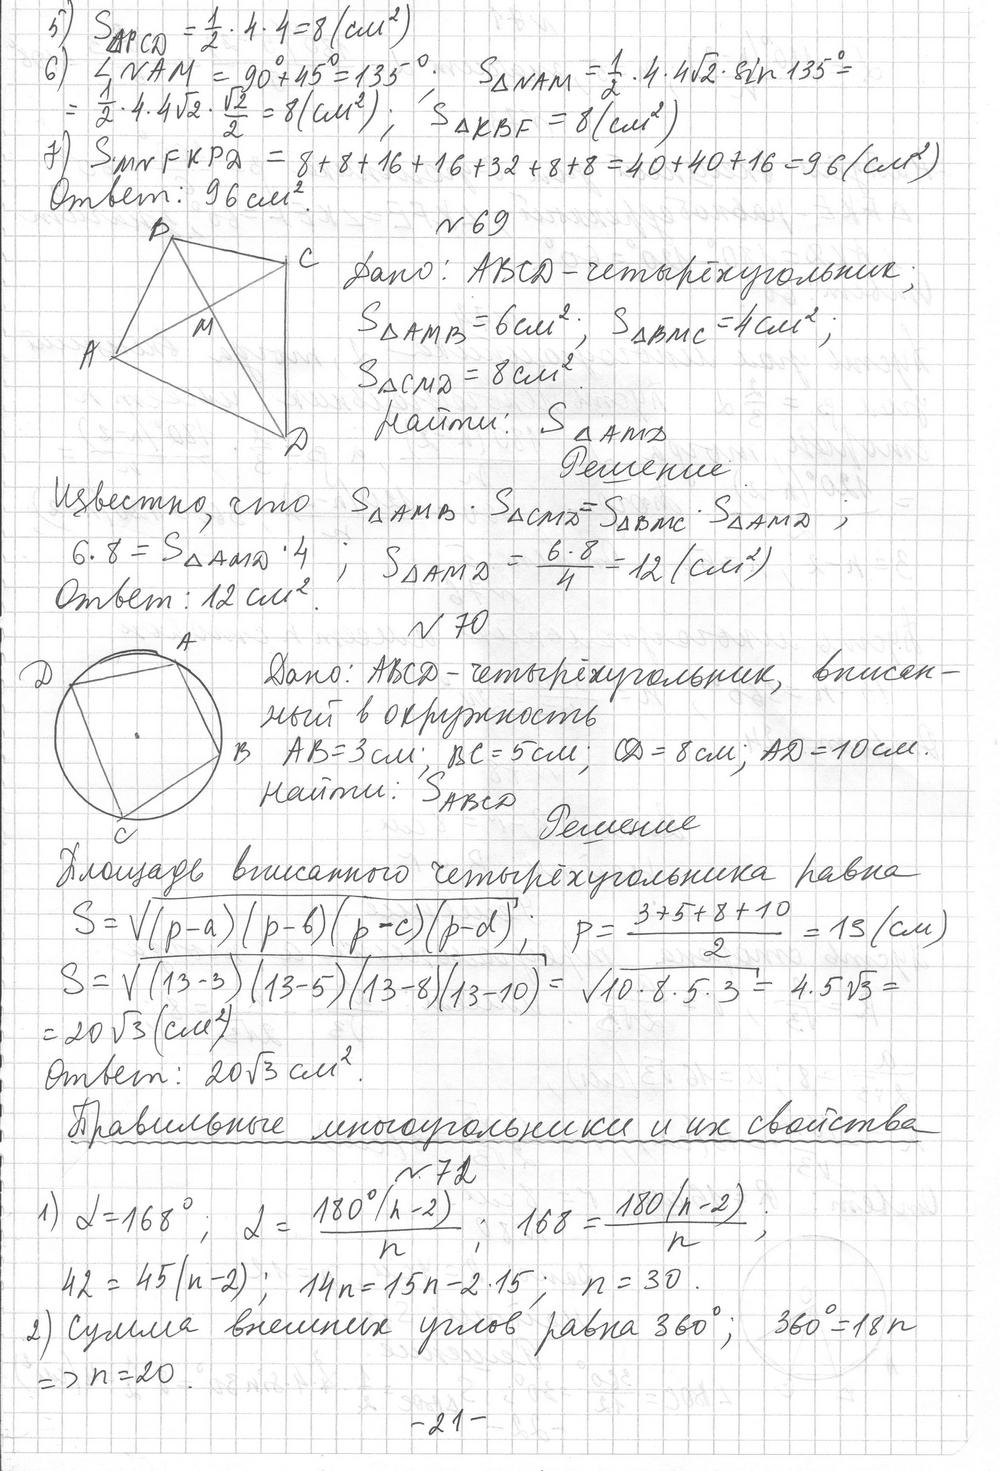 5) S△PCD = 1/2 · 4 · 4 = 8 (см²)
6) ∠NAM = 90° + 45° = 135°; S△NAM = 1/2 · 4 · 4√2 · sin 135° =
= 1/2 · 4 · 4√2 · √2/2 = 8 (см²); S△KBF = 8 (см²)
7) SMNFKPD = 8 + 8 + 16 + 16 + 32 + 8 + 8 = 40 + 40 + 16 = 96 (см²)
Ответ: 96 см².
№ 69
B
C
M
A
D
Дано: ABCD – четырёхугольник;
S△AMB = 6 см²; S△BMC = 4 см²;
S△CMD = 8 см².
Найти: S△AMD
Решение
Известно, что S△AMB · S△CMD = S△BMC · S△AMD;
6 · 8 = S△AMD · 4; S△AMD = 6·8/4 = 12 (см²)
Ответ: 12 см².
№ 70
A
D
B
C
Дано: ABCD – четырёхугольник, вписан-
ный в окружность
AB = 3 см; BC = 5 см; CD = 8 см; AD = 10 см.
Найти: SABCD
Решение
Площадь вписанного четырёхугольника равна
S = √(p-a)(p-b)(p-c)(p-d); p = 3+5+8+10/2 = 13 (см)
S = √(13-3)(13-5)(13-8)(13-10) = √10·8·5·3 = 4·5√3 =
= 20√3 (см²)
Ответ: 20√3 см².
Правильные многоугольники и их свойства
№ 72
1) α = 168°; α = 180°(n-2)/n; 168 = 180(n-2)/n;
42 = 45(n-2); 14n = 15n - 2·15; n = 30.
2) Сумма внешних углов равна 360°; 360° = 18n
=> n = 20.
-21-